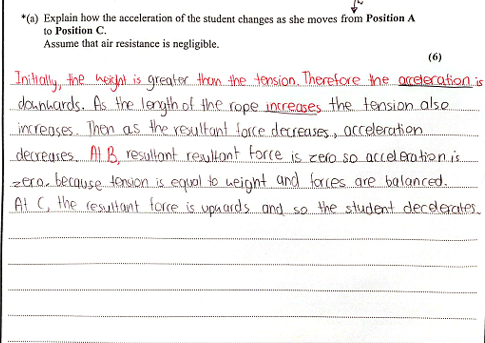 *(a) Explain how the acceleration of the student changes as she moves from Position A
to Position C.
Assume that air resistance is negligible.
(6)
Initially, the weight is greater than the tension. Therefore the acceleration is
downwards. As the length of the rope increases the tension also
increases. Then as the resultant force decreases, acceleration
decreases. At B, resultant resultant force is zero so acceleration is
zero. because tension is equal to weight and forces are balanced.
At C, the resultant force is upwards and so the student decelerates.